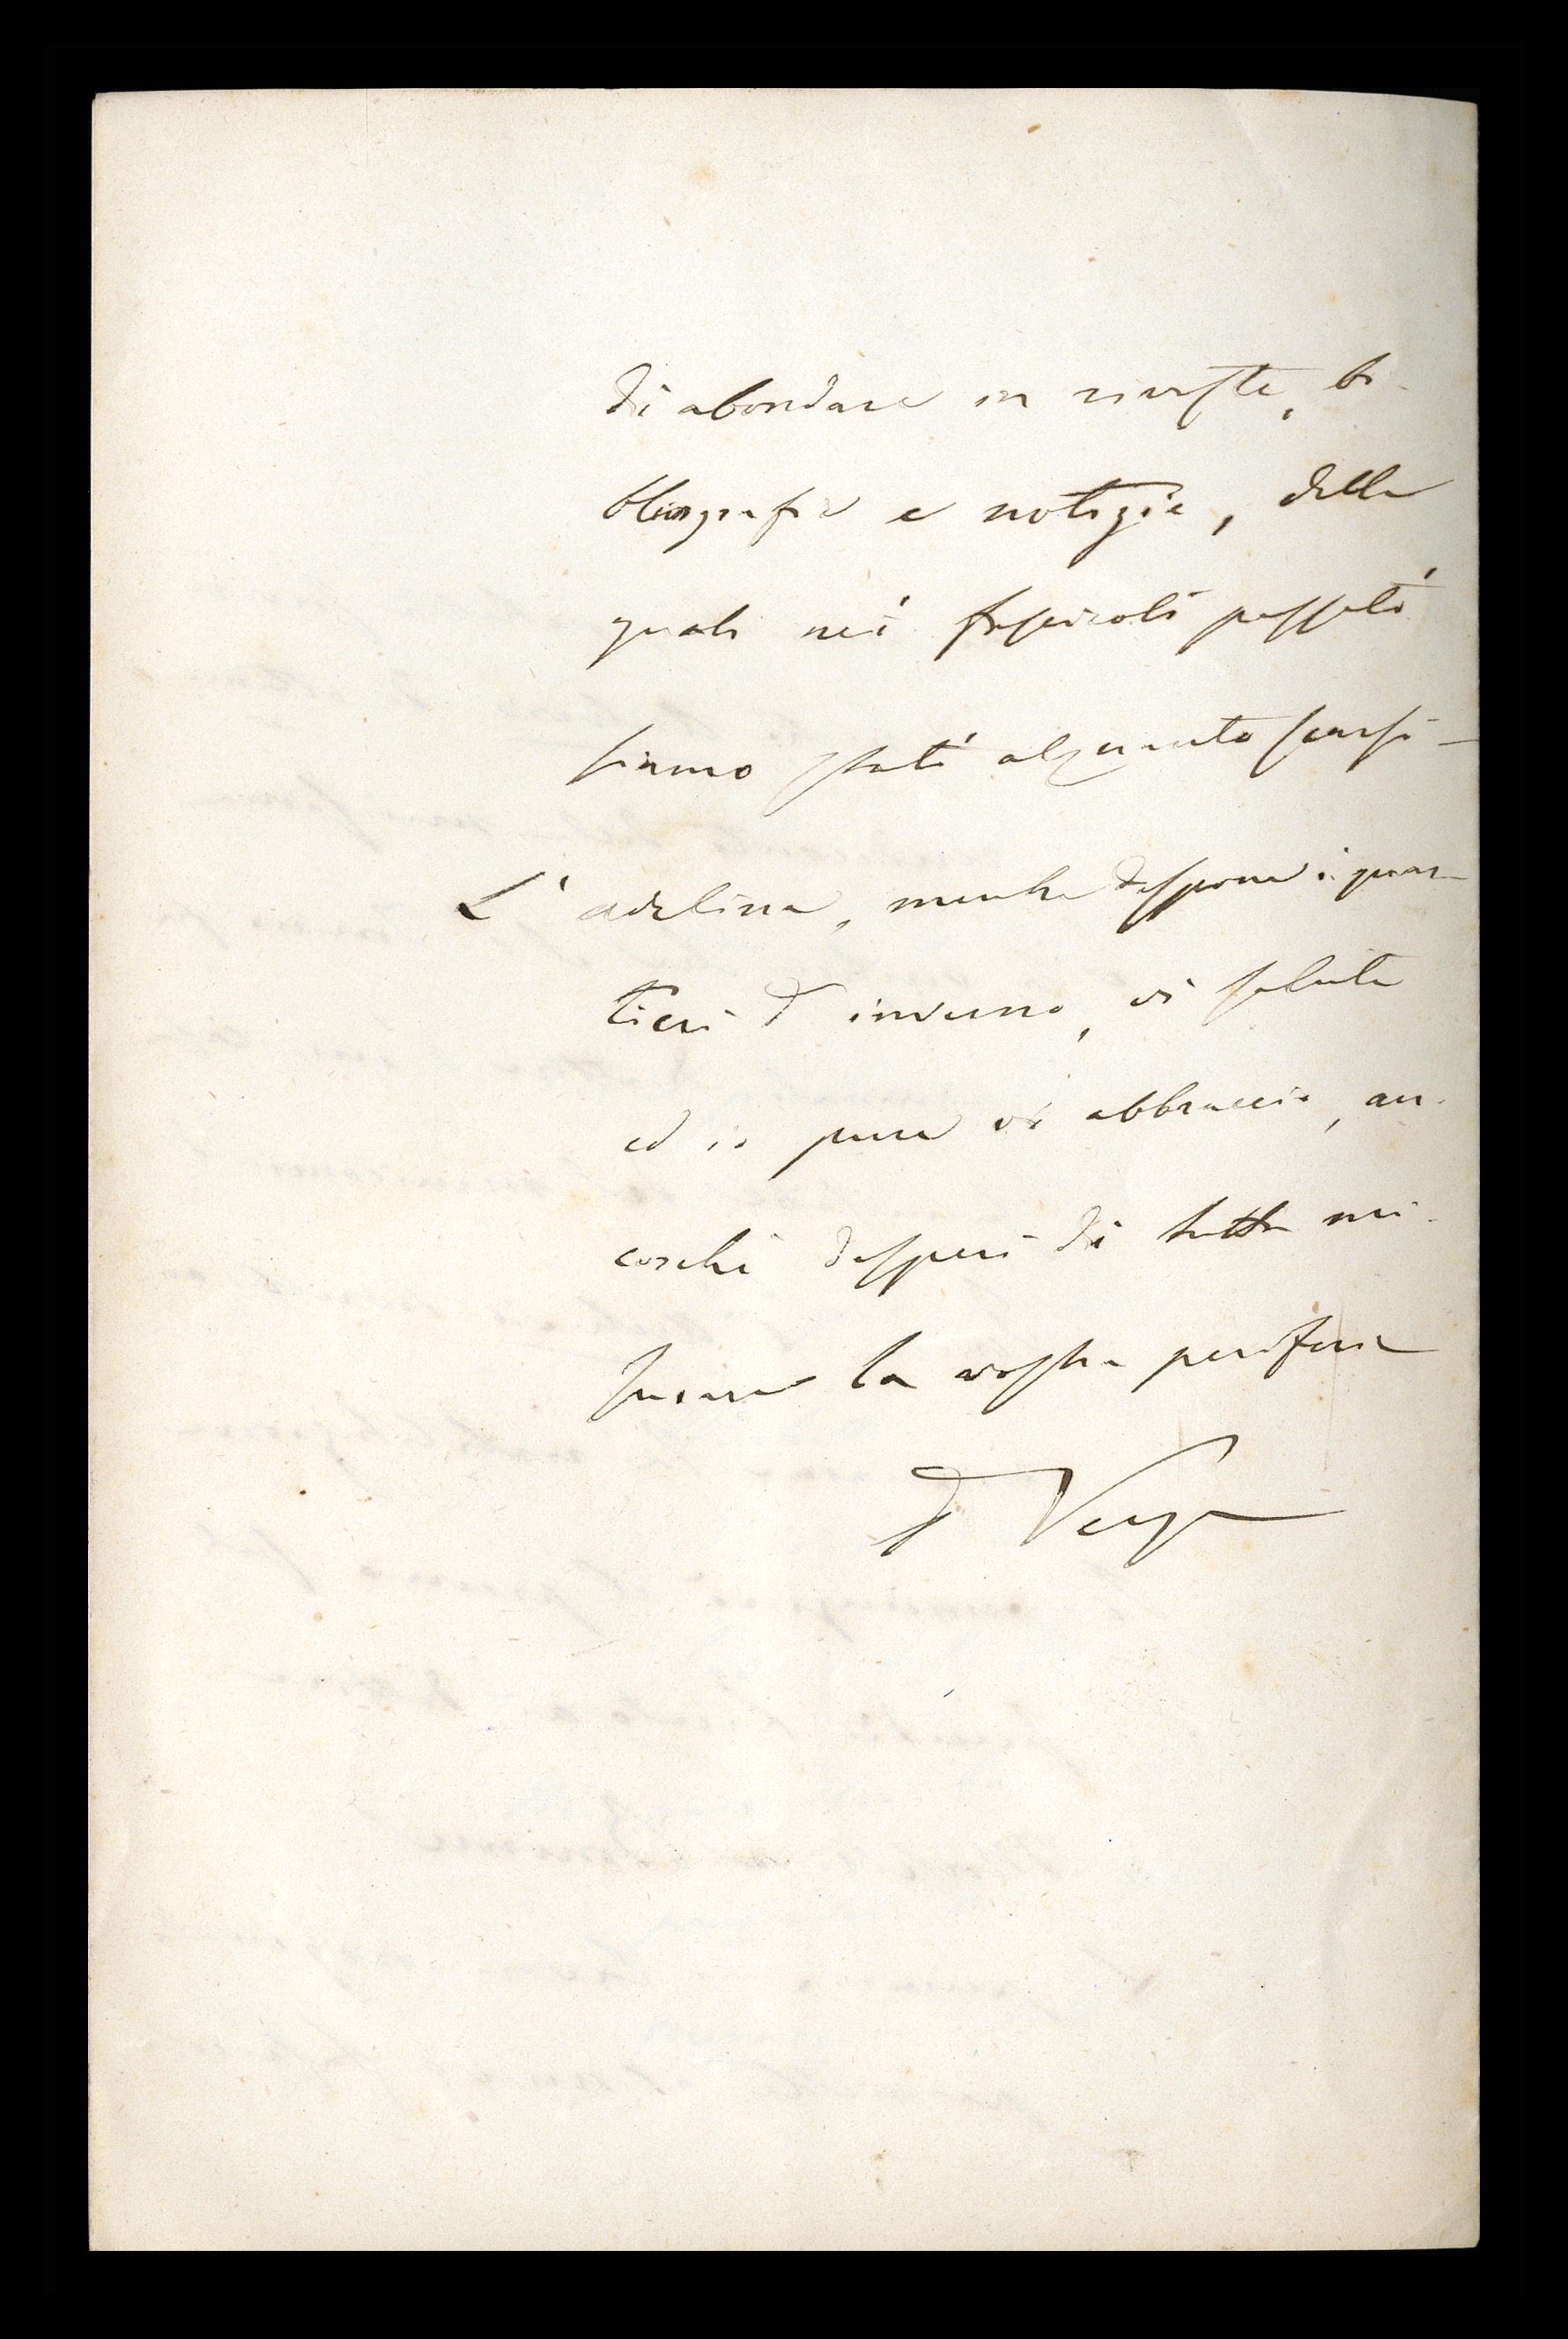 di abondare in riviste, bi-
bliografie e notizie, delle
quali nei fascicoli passati
siamo stati alquanto scarsi –
L'adelina, mentre dispone i quar-
tieri d'inverno, vi saluta
ed io pure vi abbraccio, an-
corchè disperi di tutta mi-
surare la vostra periferia
Verga